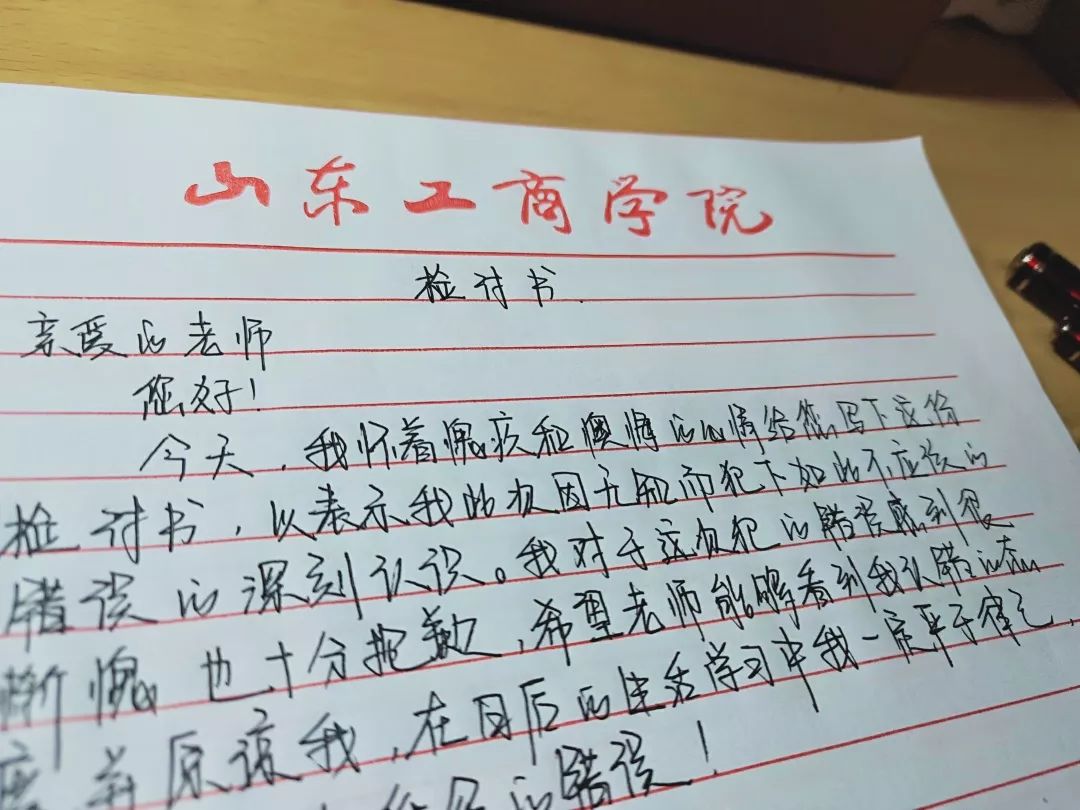 山东工商学院
检讨书
亲爱的老师
您好！
今天，我怀着愧疚和懊悔的心情给您写下这份
检讨书，以表示我此次因无知而犯下如此不应该的
错误的深刻认识。我对于这次犯的错误感到很
惭愧也十分抱歉，希望老师能够看到我认错的态
度并原谅我，在日后的生活学习中我一定严于律己，
的错误！